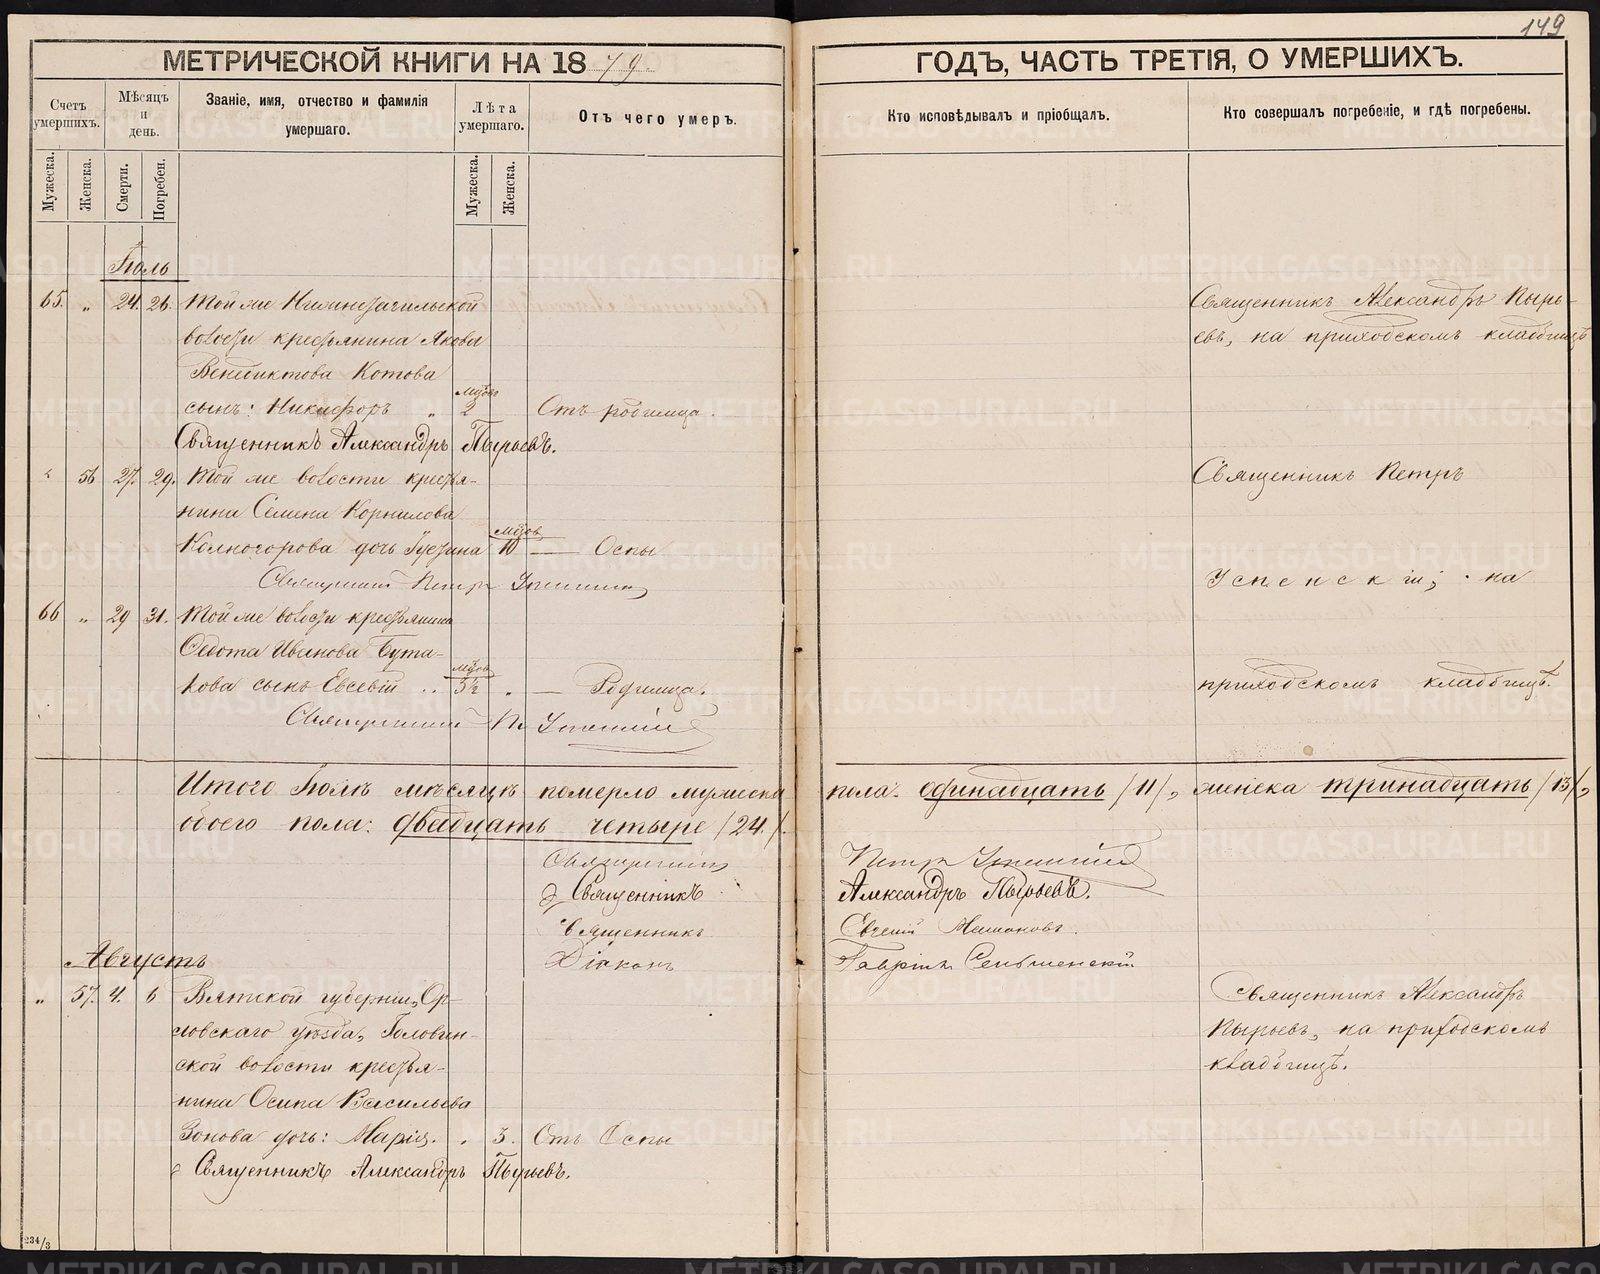 149
МЕТРИЧЕСКОЙ КНИГИ НА 1879.
ГОДЪ, ЧАСТЬ ТРЕТІЯ, О УМЕРШИХЪ.
Счетъ умершихъ.
Мѣсяцъ и день.
Званіе, имя, отчество и фамилія умершаго.
Лѣта умершаго.
Отъ чего умеръ.
Кто исповѣдывалъ и пріобщалъ.
Кто совершалъ погребеніе, и гдѣ погребены.
Мужеска.
Женска.
Смерти.
Погребен.
Мужеска.
Женска.
Іюль
65. „ 24. 26. Той же Нижнетагильской
волости крестьянина Якова
Венедиктова Котова
мѣсяц
сынъ: Никифоръ „ 2 Отъ родимца.
Священникъ Александръ Пырьевъ.
Священникъ Александръ Пырь-
евъ, на приходскомъ кладбищѣ
„ 56 27. 29. Той же волости крестья-
нина Семена Корнилова
мѣсяцов
Колногорова дочь Устина 10 — Оспы
Священникъ Петръ Успенскій
Священникъ Петръ
Успенскій; на
приходскомъ кладбищѣ.
66 „ 29 31. Той же волости крестьянина
Федота Иванова Бута-
мѣсяцов
кова сынъ Евсевій .. 5½ „ — Родимца.
Священникъ П. Успенскій
Итого Іюлѣ мѣсяцѣ померло мужеска пола: одинадцать /11/, женска тринадцать /13/,
обоего пола: двадцать четыре /24./.
Священникъ Петръ Успенскій
Священникъ Александръ Пырьевъ.
Священникъ Евгеній
Діаконъ Гавріилъ
Августъ
„ 57. 4. 6 Вятской губерніи, Ор-
ловскаго уѣзда, Головин-
ской волости крестья-
нина Осипа Васильева
Зонова дочь: Марія. „ 3. Отъ Оспы
Священникъ Александръ Пырьевъ.
Священникъ Александръ
Пырьевъ, на приходскомъ
кладбищѣ.
234/3
METRIKI.GASO-URAL.RU